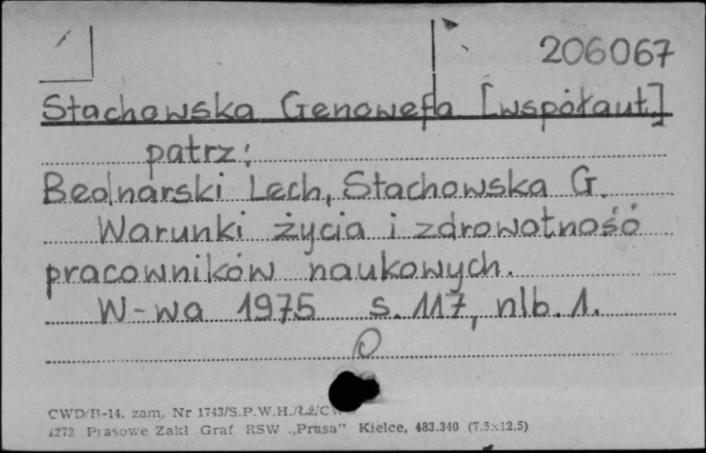 206067
Stachowska Genowefa [współaut.]
patrz:
Bednarski Lech, Stachowska G.
Warunki życia i zdrowotność
pracowników naukowych.
W-wa 1975 s. 117, nlb. 1.
CWD/B-14. zam. Nr 1743/S.P.W.H./Łż/
1272 Prasowe Zakł Graf RSW „Prasa" Kielce, 483.340 (7.5×12.5)